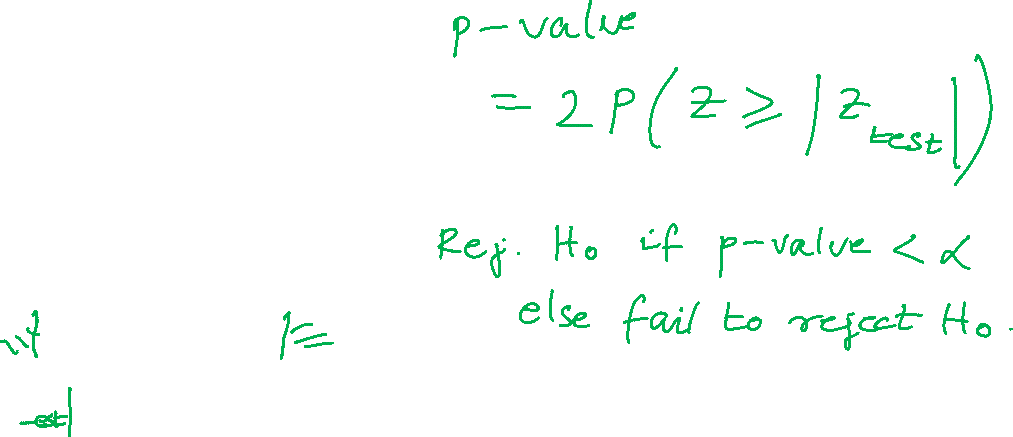 p-value
= 2 P( Z ≥ |Z test|)
Rej. Ho if p-value < α
else fail to reject Ho.